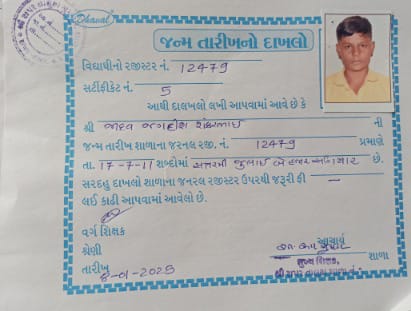 Dhanal
જન્મ તારીખનો દાખલો
વિદ્યાર્થીનો રજીસ્ટર નં. 12479
સર્ટીફીકેટ નં. 5
આથી દાલખલો લખી આપવામાં આવે છે કે
શ્રી જાદવ જગદીશ ની
જન્મ તારીખ શાળાના જરનલ રજી. નં. 12479 પ્રમાણે
તા. 17-7-11 શબ્દોમાં સત્તરમી જુલાઈ બે હજાર અગિયાર છે.
સરદહુ દાખલો શાળાના જનરલ રજીસ્ટર ઉપરથી જરૂરી ફી —
લઈ કાઢી આપવામાં આવેલો છે.
વર્ગ શિક્ષક
શ્રેણી
આચાર્ય
તારીખ
શાળા
મુખ્ય શિક્ષક,